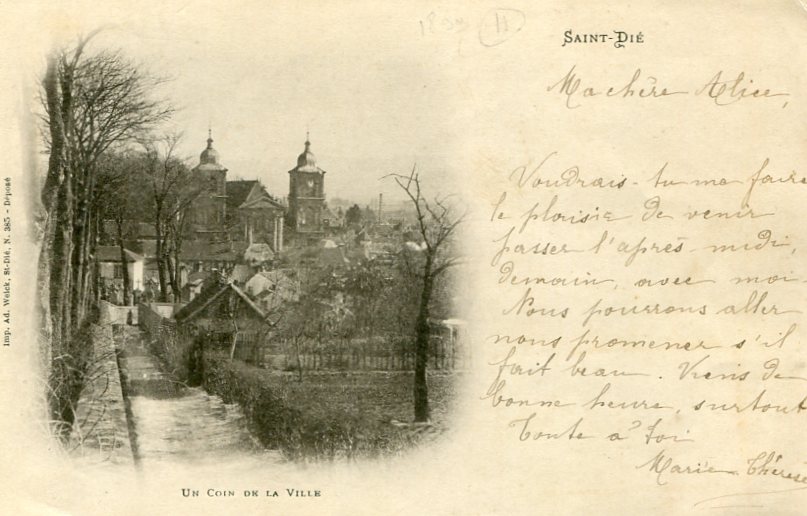 SAINT-DIÉ
Ma chère Alice,
Voudrais-tu me faire
le plaisir de venir
passer l'après-midi,
demain, avec moi
Nous pourrons aller
nous promener s'il
fait beau. Viens de
bonne heure, surtout
Toute à toi
Marie-Thérèse
UN COIN DE LA VILLE
Imp. Ad. Weick, St-Dié, N. 385 - Déposé
11